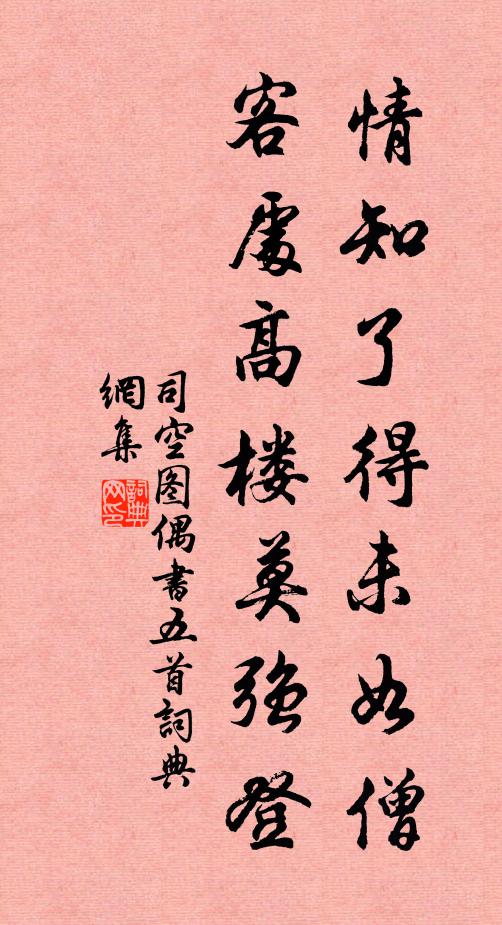 情知了得未如僧
客處高楼莫強登
司空图偶書五首詞典
網集
詞典网印